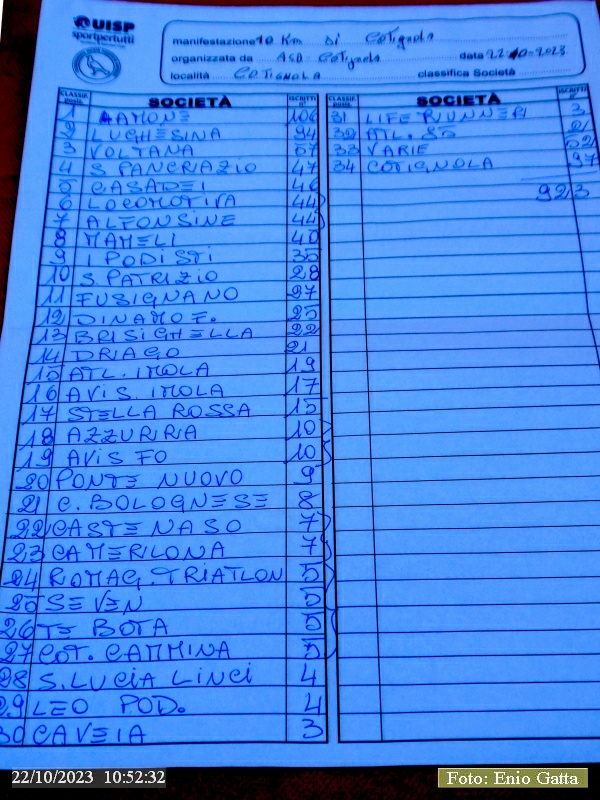 UISP
sportpertutti
manifestazione 10 Km Di Cotignola
organizzata da ASD Cotignola data 22-10-2023
località COTIGNOLA classifica Società
CLASSIF. SOCIETÀ ISCRITTI n°
1 LAMONE 106
2 LUGHESINA 94
3 VOLTANA 57
4 S. PANCRAZIO 47
5 CASADEI 46
6 LOCOMOTIVA 44
7 ALFONSINE 44
8 MAMELI 40
9 I PODISTI 35
10 S. PATRIZIO 28
11 FUSIGNANO 27
12 DINAMO F. 25
13 BRISIGHELLA 22
14 DRIAGO 21
15 ATL. IMOLA 19
16 AVIS. IMOLA 17
17 STELLA ROSSA 15
18 AZZURRA 10
19 AVIS FO 10
20 PONTE NUOVO 9
21 C. BOLOGNESE 8
22 CASTENASO 7
23 CAMERLONA 7
24 ROMAG. TRIATLON 5
25 SEVEN 5
26 TE BOTA 5
27 COT. CAMMINA 5
28 S. LUCIA LINCI 4
29 LEO POD. 4
30 CAVEIA 3
CLASSIF. SOCIETÀ ISCRITTI n°
31 LIFE RUNNER 3
32 ATL. 85 2
33 VARIE 52
34 COTIGNOLA 97
923
22/10/2023 10:52:32
Foto: Enio Gatta